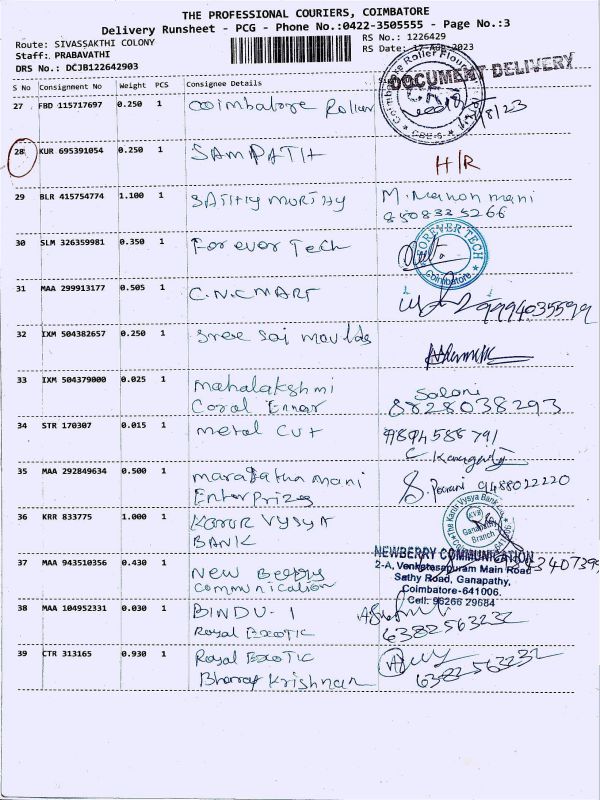 THE PROFESSIONAL COURIERS, COIMBATORE
Delivery Runsheet - PCG - Phone No.:0422-3505555 - Page No.:3
Route: SIVASSAKTHI COLONY
RS No.: 1226429
Staff: PRABAVATHI
RS Date: 17-Aug-2023
DRS No.: DCJB122642903
DOCUMENT DELIVERY
S No Consignment No Weight PCS Consignee Details
27 FBD 115717697 0.250 1 Coimbatore Roller
28 KUR 695391054 0.250 1 SAMPATH H/R
29 BLR 415754774 1.100 1 SATHIY MURTHY M. Manonmani
8508325266
30 SLM 326359981 0.350 1 Forever Tech
FOREVER TECH
Coimbatore
31 MAA 299913177 0.505 1 C.N.C MART 9994035599
32 IXM 504382657 0.250 1 Sree Sai Moulds
33 IXM 504379000 0.025 1 Mahalakshmi
Coral
8828038293
34 STR 170307 0.015 1 Metal Cut
35 MAA 292849634 0.500 1 maragatha mani 9488022220
Enterprizes
36 KRR 833775 1.000 1 KARUR VYSYA
BANK
The Karur Vysya Bank
KVB
Ganapathy
Branch
37 MAA 943510356 0.430 1 New Berry
Communication
NEWBERRY COMMUNICATION
2-A, Venkatesapuram Main Road
Sathy Road, Ganapathy,
Coimbatore-641006.
Cell: 96266 29684
38 MAA 104952331 0.030 1 BINDU. I
Royal Exotic 6382563232
39 CTR 313165 0.930 1 Royal Exotic
Bharay Krishnan 6382563232